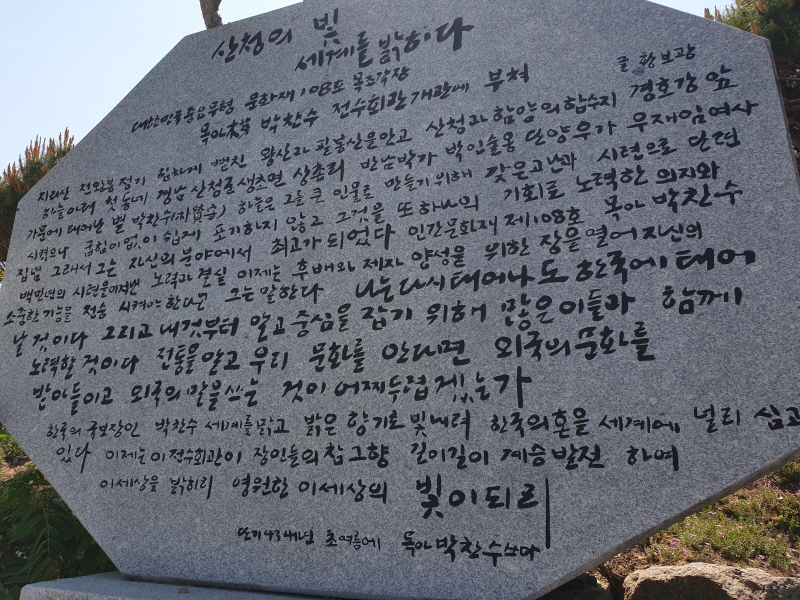 산청의 빛
세계를 밝히다
글 황보광
대한민국중요무형 문화재 108호 목조각장
목아木芽 박찬수 전수회관개관에 부쳐
지리산 천왕봉정기 힘차게 뻗친 왕산과 필봉산을안고 산청과 함양의합수지 경호강 앞
하늘아래 첫동네 경남 산청군생초면 상촌리 반남박가 박인술옹 단양우가 우재임여사
가문에 태어난 별 박찬수 하늘은 그를 큰 인물로 만들기 위해 갖은고난과 시련으로 단련
시켰으나 굽힘이없이 쉽게 포기하지 않고 그것을 또하나의 기회로 노력한 의지와
집념 그래서 그는 자신의 분야에서 최고가 되었다 인간문화재 제108호 목아 박찬수
백만년의 시련을이겨낸 노력과 결실 이제는 후배와 제자 양성을 위한 장을열어 자신의
소중한기능을 전승 시켜야한다고 그는말한다 나는다시태어나도 한국에태어
날 것이다 그리고 내것부터 알고 중심을 잡기 위해 많은이들과 함께
노력할것이다 전통을알고 우리 문화를 안다면 외국의문화를
받아들이고 외국의 말을쓰는 것이어찌두렵겠는가
한국의국보장인 박찬수 세계를맑고 밝은 향기로빛내려 한국의혼을세계에 널리 심고
있다 이제는이전수회관이 장인들의참고향 길이길이 계승발전 하여
이세상을 밝히리 영원한이세상의 빛이되리
단기4344년 초여름에 목아박찬수쓰다